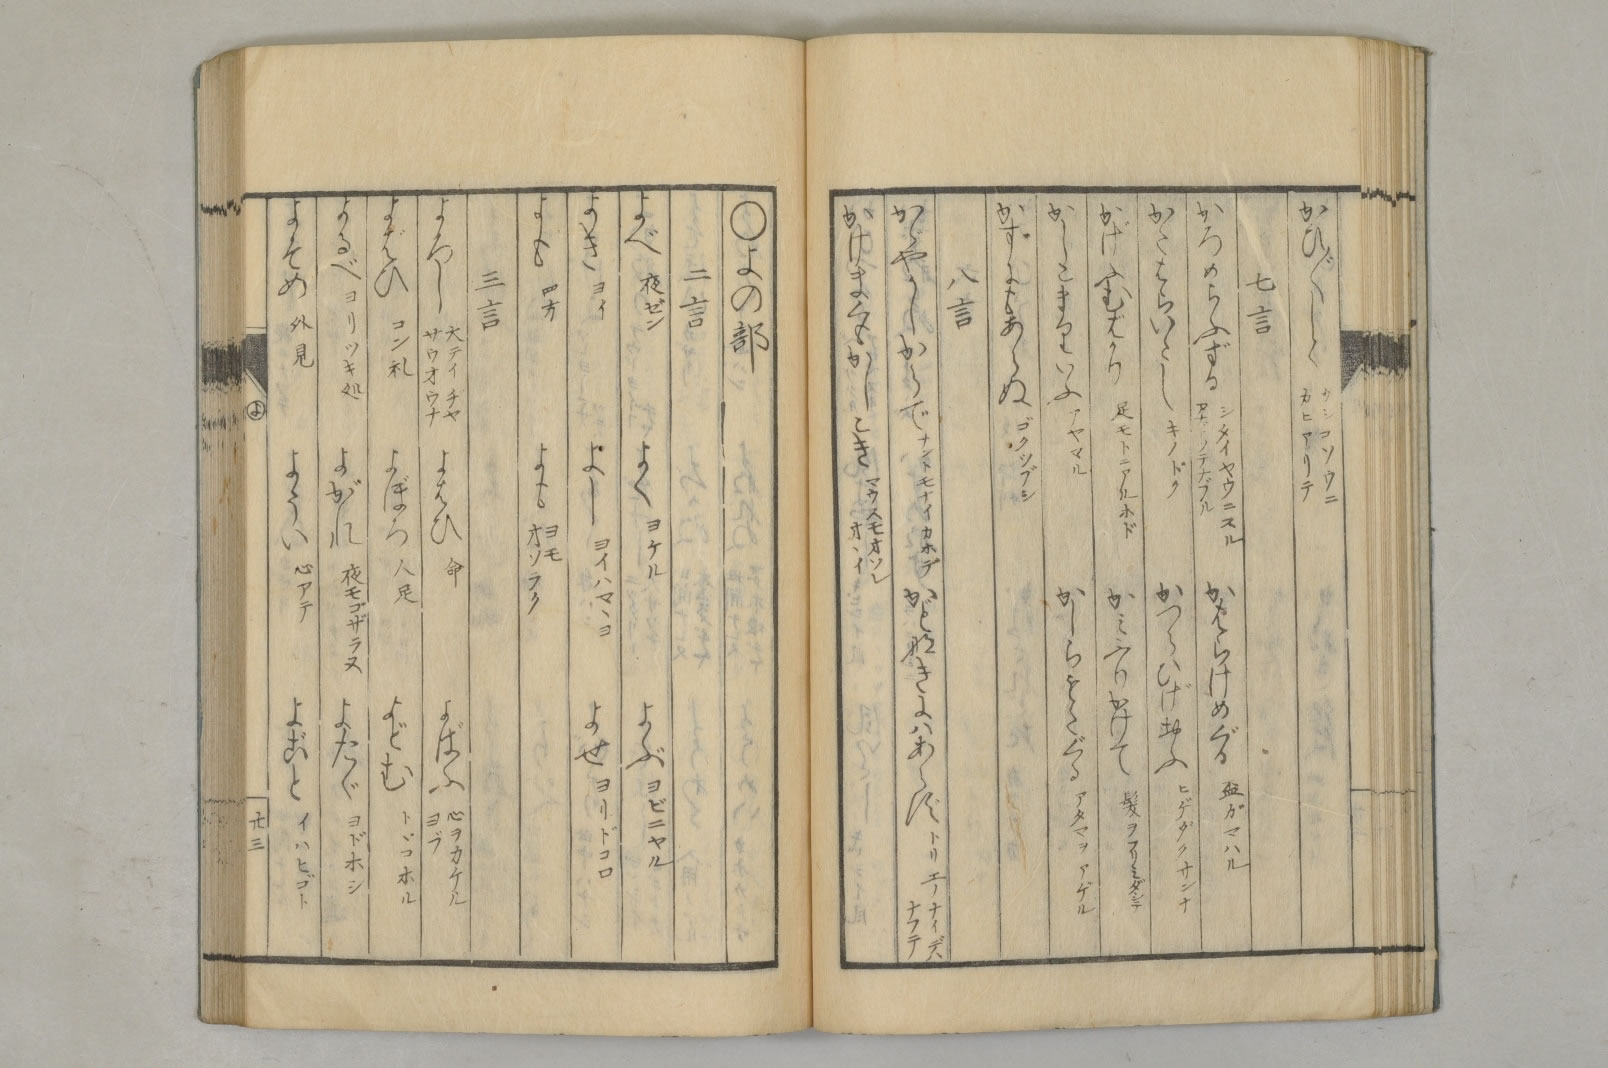 かひ〲しく カシコソウニ カヒアリテ
七言
かろめらふずる シダイヤウニスル
かもらけめぐる 盃ガマハル
かたはらいたし キノドク
かつらひげ ヒゲダクサンナ
かげふむばかり 足モトニアルホド
かみふりかけて 髪ヲフリミダシテ
かしこまりといふ アヤマル
かしらもたぐる アタマヲアゲル
かずにもあらぬ ゴクツブシ
八言
かゞやかしからで ナントモナイカホデ
かど〳〵きにはあらず トリエノナイデハナクテ
かけまくもかしこき マウスモオソレオヽイ
〇よの部
二言
よべ 夜ゼン
よく ヨケル
よぶ ヨビニヤル
よき ヨイ
よし ヨイハマヽヨ
よせ ヨリドコロ
よも 四方
よも ヨモ オソラク
三言
よろし 大テイ ヂヤ サウオウナ
よはひ 命
よばふ 心ヲカケル ヨブ
よばひ コン礼
よぼろ 人足
よどむ トヾコホル
よるべ ヨリツキ処
よがれ 夜モゴザラヌ
よたゞ ヨドホシ
よそめ 外見
ようい 心アテ
よごと イハヒゴト
よ
廿三